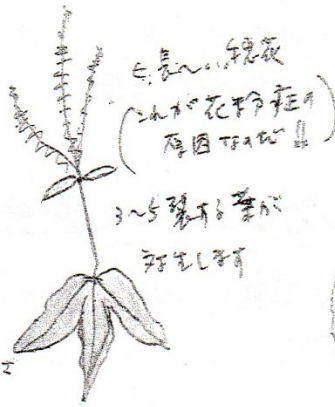 長〜い穂花
(これが花粉症の
原因なのだ!!)
3〜5裂する葉が
対生します